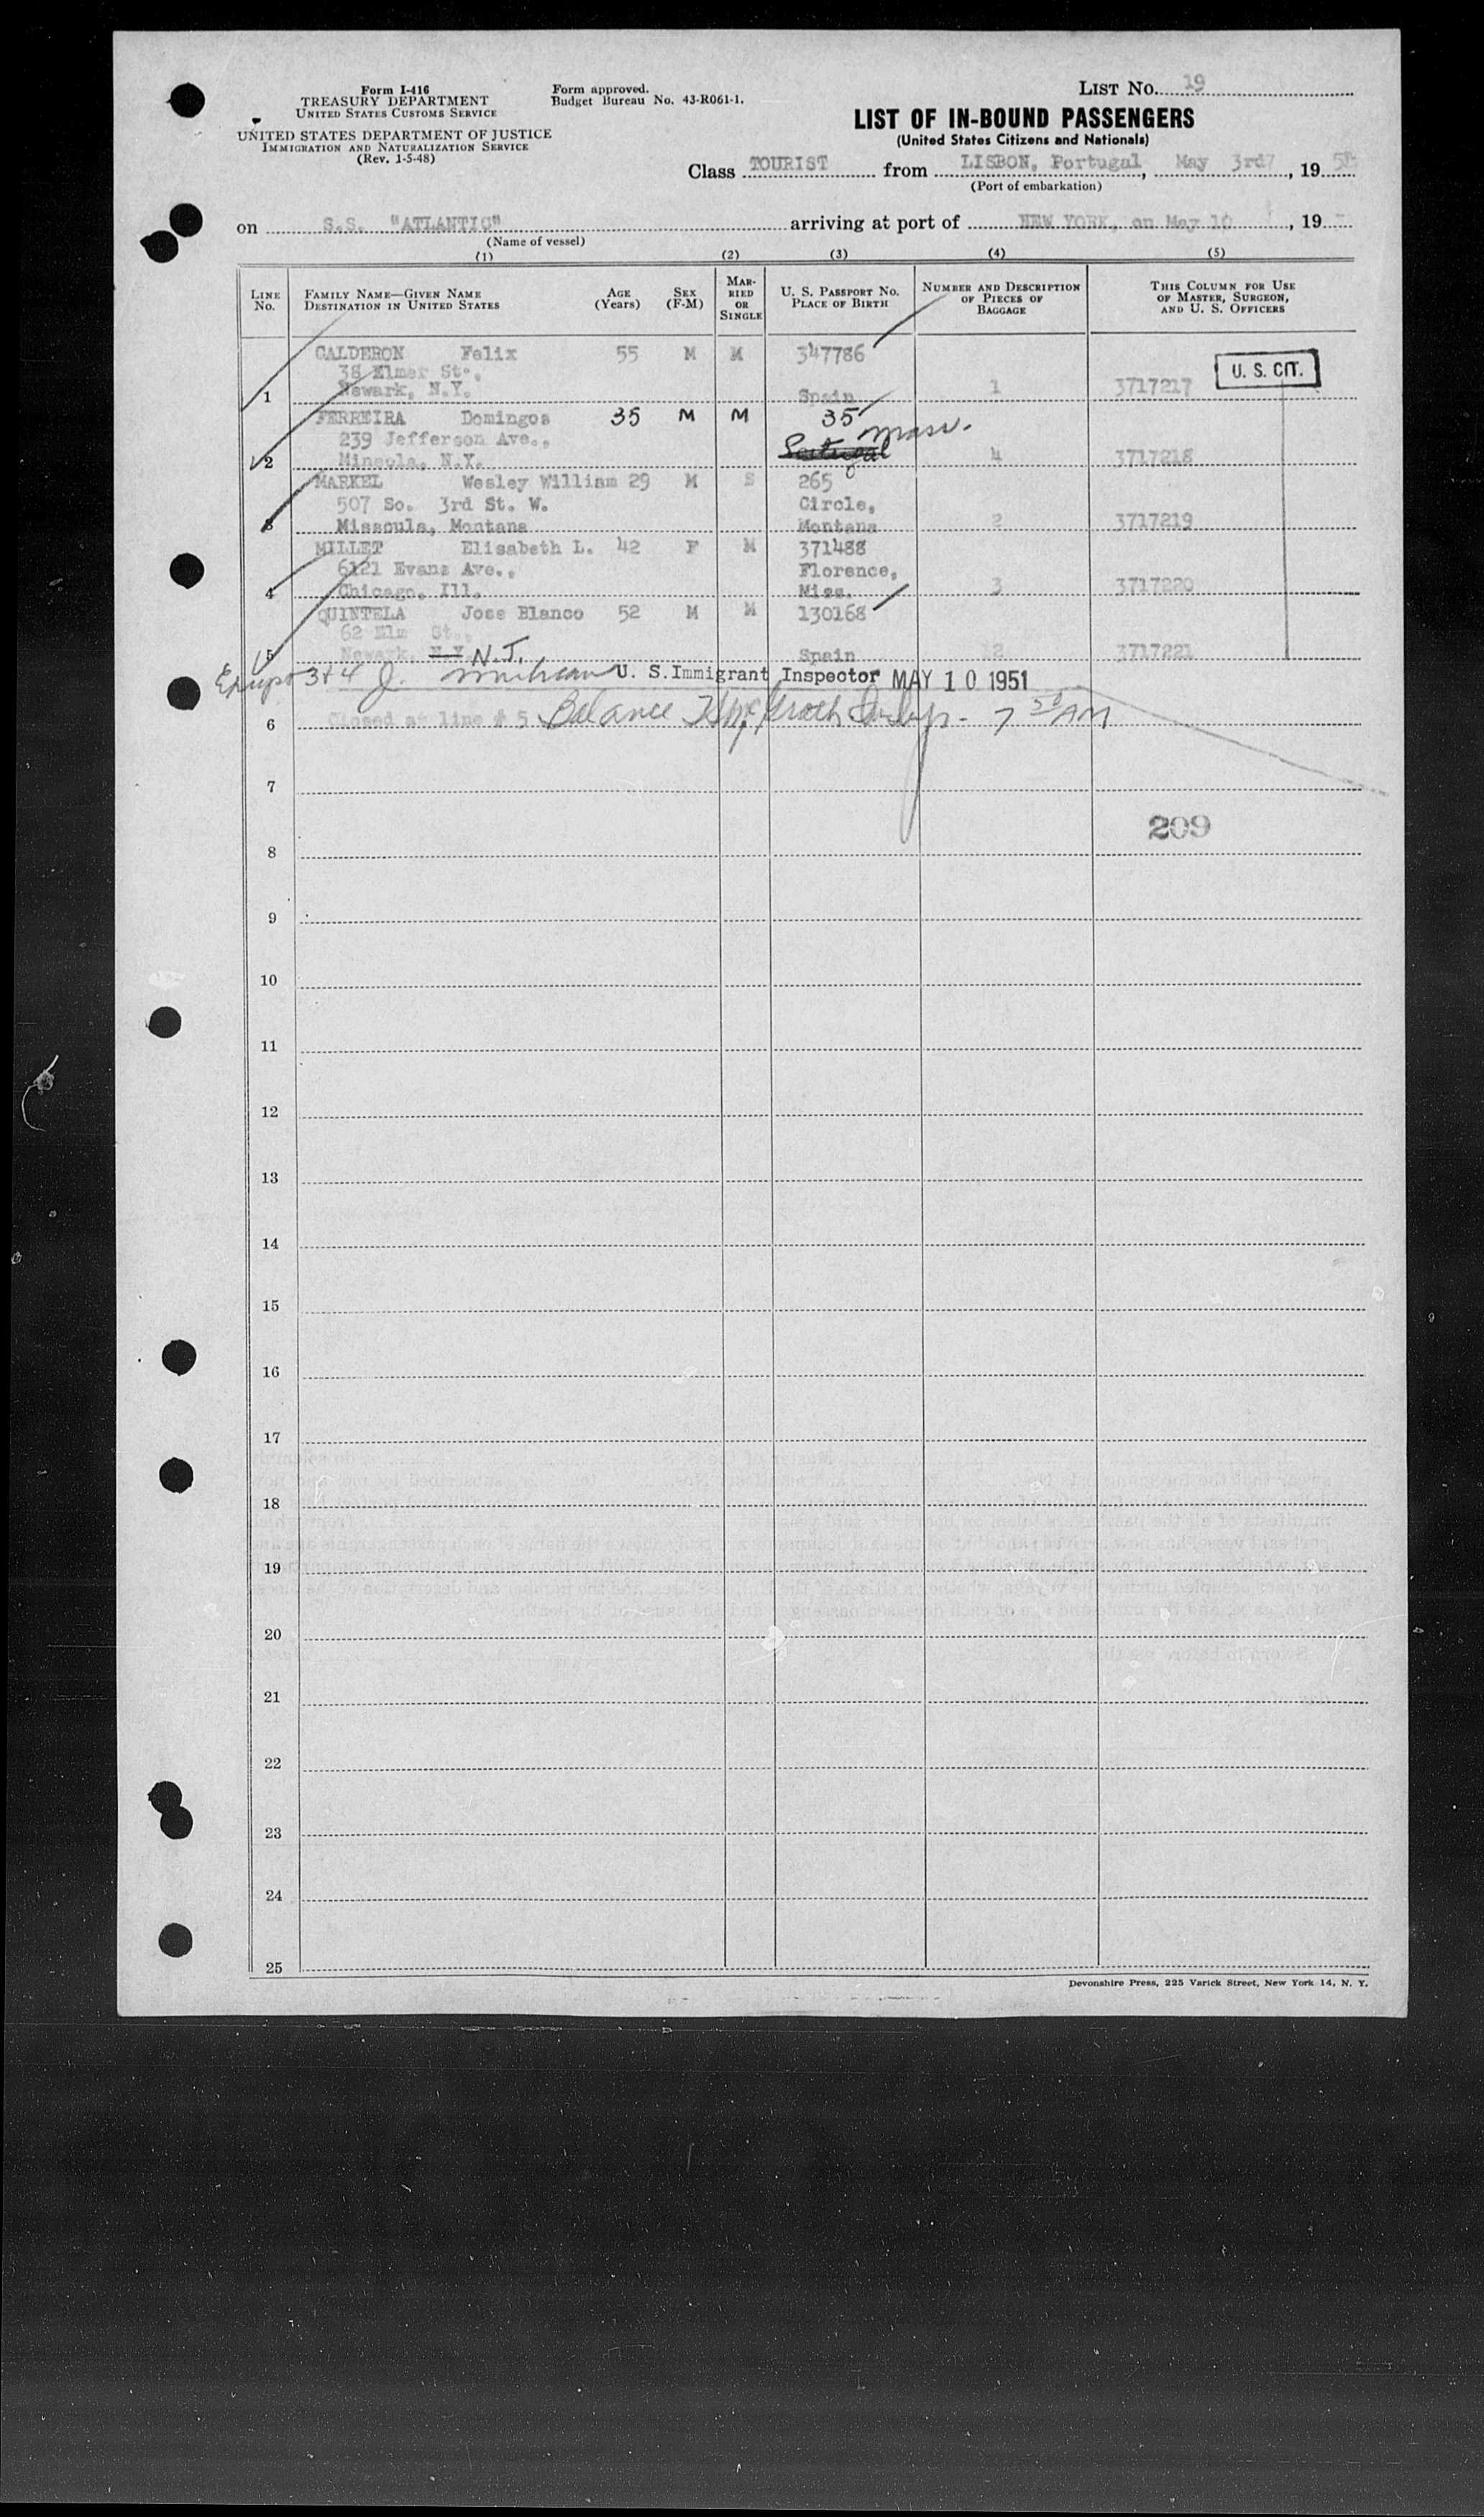 Form I-416
TREASURY DEPARTMENT
UNITED STATES CUSTOMS SERVICE
UNITED STATES DEPARTMENT OF JUSTICE
IMMIGRATION AND NATURALIZATION SERVICE
(Rev. 1-5-48)
Form approved.
Budget Bureau No. 43-R061-1.
LIST No. 19
LIST OF IN-BOUND PASSENGERS
(United States Citizens and Nationals)
Class TOURIST from LISBON, Portugal, May 3rd, 19
(Port of embarkation)
on S.S. "ATLANTIC" arriving at port of NEW YORK, on May 10, 19
(Name of vessel)
(1) (2) (3) (4) (5)
LINE No. FAMILY NAME—GIVEN NAME DESTINATION IN UNITED STATES AGE (Years) SEX (F-M) MARRIED OR SINGLE U. S. PASSPORT NO. PLACE OF BIRTH NUMBER AND DESCRIPTION OF PIECES OF BAGGAGE THIS COLUMN FOR USE OF MASTER, SURGEON, AND U. S. OFFICERS
CALDERON Felix 55 M M 347786
38 Elmer St., U. S. CIT.
1 Newark, N.Y. Spain 1 3717217
FERREIRA Domingos 35 M M 35
239 Jefferson Ave., Portugal Mass.
2 Mineola, N.Y. 4 3717218
MARKEL Wesley William 29 M S 265
507 So. 3rd St. W. Circle,
3 Missoula, Montana Montana 2 3717219
MILLET Elisabeth L. 42 F M 371488
6121 Evans Ave., Florence,
4 Chicago, Ill. Miss. 3 3717220
QUINTELA Jose Blanco 52 M M 130168
62 Elm St.,
5 Newark, N.Y. N.J. Spain 12 3717221
3+4 J. U. S. Immigrant Inspector MAY 10 1951
6 Closed at line # 5 Balance 7 AM
7
209
8
9
10
11
12
13
14
15
16
17
18
19
20
21
22
23
24
25
Devonshire Press, 225 Varick Street, New York 14, N. Y.